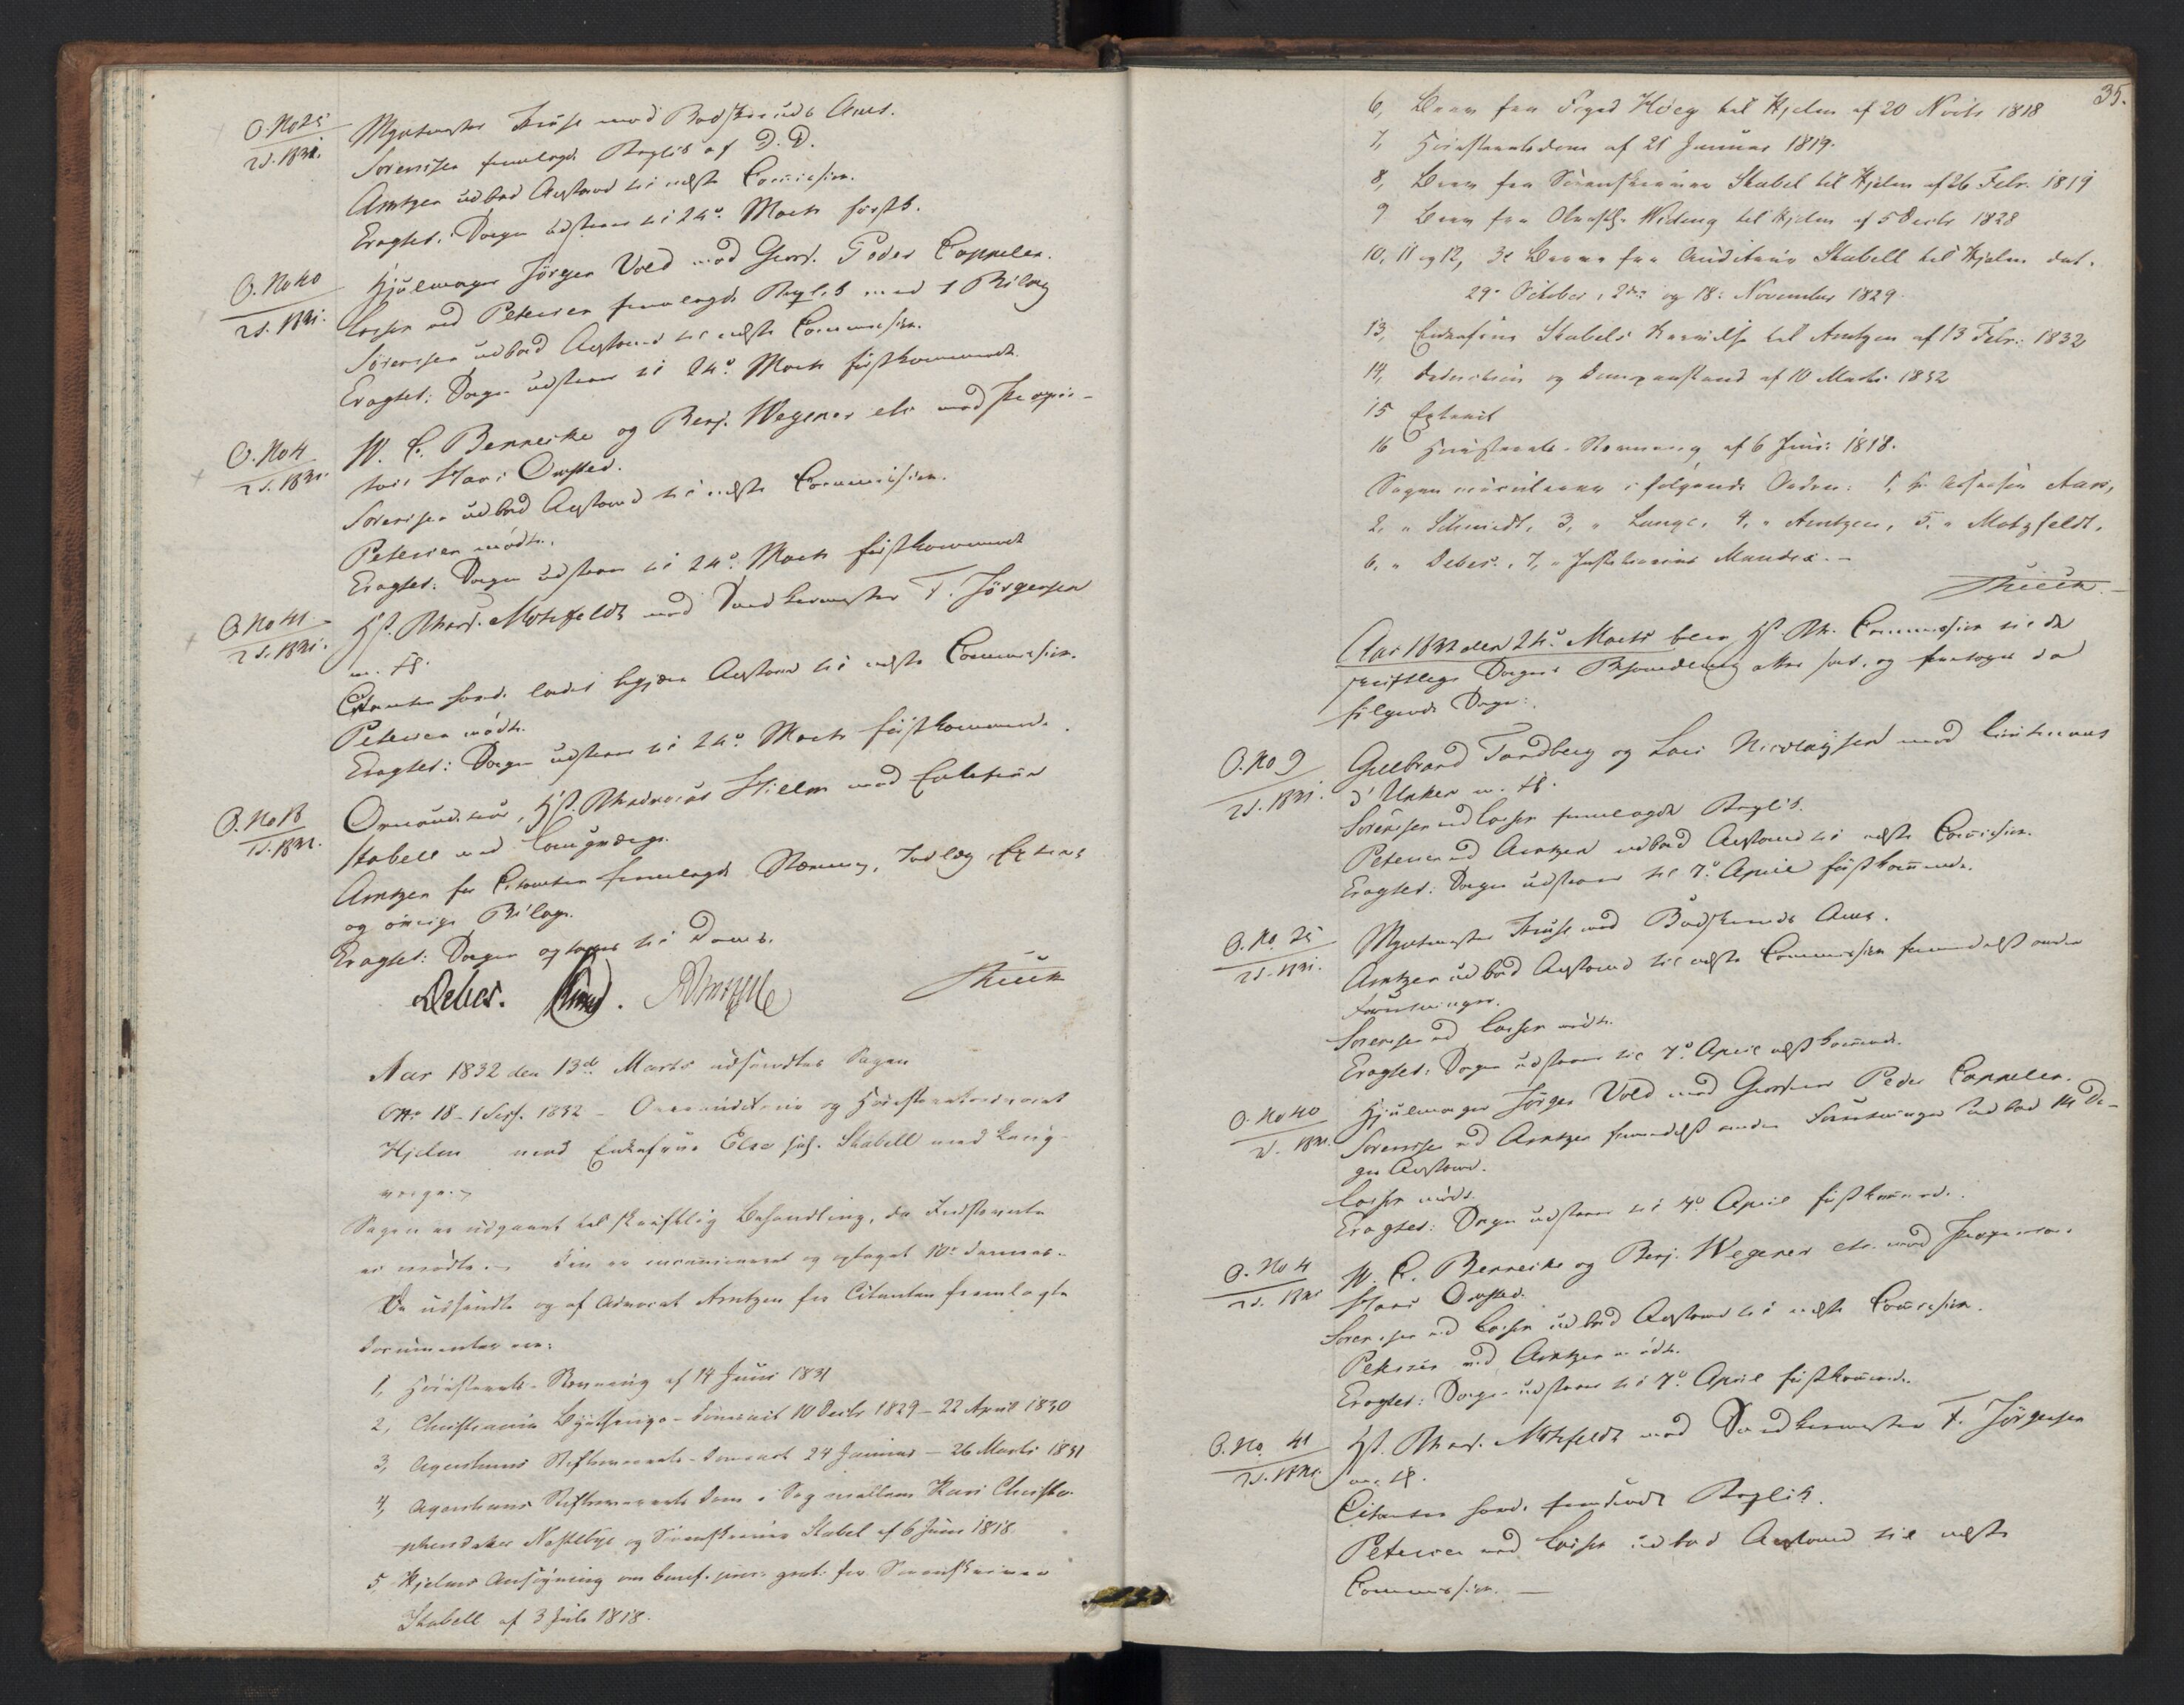 O. No 25
2 S. 1831.
Myntmester Kruse mod Buskeruds Amt.
Sörensen fremlagde Replik af D. D.
Arntzen udbad Anstand til næste Commission.
Eragtet: Sagen udstaar til 24de Marts förstk.
O. No 40
2 S. 1831.
Hjulmager Jörgen Vold mod Gross. Peder Cappelen.
Lasson ved Petersen fremlagde Replik med 1 Bilag
Sörensen udbad Anstand til næste Commission.
Eragtet: Sagen udstaar til 24de Marts förstkommende
O. No 4
2 S. 1831.
W. C. Bennecke og Benj. Wegener etc mod Proprie-
tair Hans Onsted.
Sörensen udbad Anstand til næste Commission.
Petersen mödte.
Eragtet: Sagen udstaar til 24de Marts förstkommende
O. No 41
2 S. 1831.
Hst. Motzfeldt mod F. Jörgensen
m. fl.
Citanten lader begjære Anstand til næste Commission.
Petersen mödte.
Eragtet: Sagen udstaar til 24de Marts förstkommende.
O. No 18
1 S. 1832.
Overauditeur, Hst. Advocat Hielm mod Enkefrue
Stabell med Laugværge.
Arntzen for Citanten fremlagde Stævning, Indlæg, Extract
og övrige Bilage.
Eragtet: Sagen optages til Doms.
Debes.
Aar 1832 den 13de Marts udsendtes Sagen
No 18 - 1 Sess. 1832 - Overauditeur og Höiesteretsadvocat
Hjelm mod Enkefrue Else Stabell med Laug-
værge.
Sagen er udgaaet til skriftlig Behandling, da Indstevnte
ei mödte. - Den er incamineret og optaget 10de dennes.
De udsendte og af Advocat Arntzen for Citanten fremlagte
Documenter ere:
1, Höiesterets-Stevning af 14 Juni 1831
2, Christiania Byethings-Domsact 10 Decbr 1829 - 22 April 1830
3, Agershuus Stiftsoverrets-Domsact 24 Januar - 26 Marts 1831
4, Agershuus Stiftsoverrets Dom i Sag mellem Kari Christo-
phersdatter og Sorenskriver Stabel af 6 Juni 1818
5, Hjelms Ansögning om benef. proc. grat. for Sorenskriver
Stabell af 3 Juli 1818.
35.
6, Brev fra Foged Höeg til Hjelm af 20 Novbr 1818
7, Höiesteretsdom af 21 Januar 1819.
8, Brev fra Sorenskriver Stabel til Hjelm af 26 Febr. 1819
9 Brev fra Wideng til Hjelm af 5 Decbr 1828
10, 11 og 12, 3e Breve fra Auditeur Stabell til Hjelm dat.
29. October, 2den og 18. November 1829.
13, Enkefrue Stabels til Arntzen af 13 Febr. 1832
14, Deduction og af 10 Marts 1832
15 Extract
16 Höiesterets-Stevning af 6 Juni 1818.
Sagen circulerer i følgende Orden: 1, Hr Assessor Aars,
2, " Schmidt, 3, " Lange, 4, " Arntzen, 5, " Motzfeldt,
6, " Debes, 7, " Justitiarius Mandix. -
Aar 1832 den 24de Marts blev Hst. Rts. Commission til de
skriftlige Sagers Behandling atter sat, og foretoges da
fölgende Sager:
O. No 9
2 S. 1831.
Gulbrand Tandberg og Lars Nicolaysen mod Lieutenant
d'Unker m. fl.
Sörensen ved Lasson fremlagde Replik.
Petersen ved Arntzen udbad Anstand til næste Commission.
Eragtet: Sagen udstaar til 7de April förstkommende.
O. No 25
2 S. 1831.
Myntmester Kruse mod Buskeruds Amt.
Arntzen udbad Anstand til næste Commission formedelst andre
Forretninger.
Sörensen ved Lasson mödte.
Eragtet: Sagen udstaar til 7de April næstkommende.
O. No 40
2 S. 1831.
Hjulmager Jörgen Vold mod Grosserer Peder Cappelen.
Sörensen ved Arntzen formedelst andre Forretninger udbad 14 Da-
ges Anstand.
Lasson mödte.
Eragtet: Sagen udstaar til 7de April förstkommende.
O. No 4
2 S. 1831
W. C. Bennecke og Benj. Wegener etc. mod Proprietair
Hans Onsted.
Sörensen ved Lasson udbad Anstand til næste Commission.
Petersen ved Arntzen mödte.
Eragtet: Sagen udstaar til 7de April förstkommende.
O. No 41
2 S. 1831.
Hst. Motzfeldt mod F. Jörgensen
m. fl.
Citanten fremlagde Replik.
Petersen ved Lasson udbad Anstand til næste
Commission. -